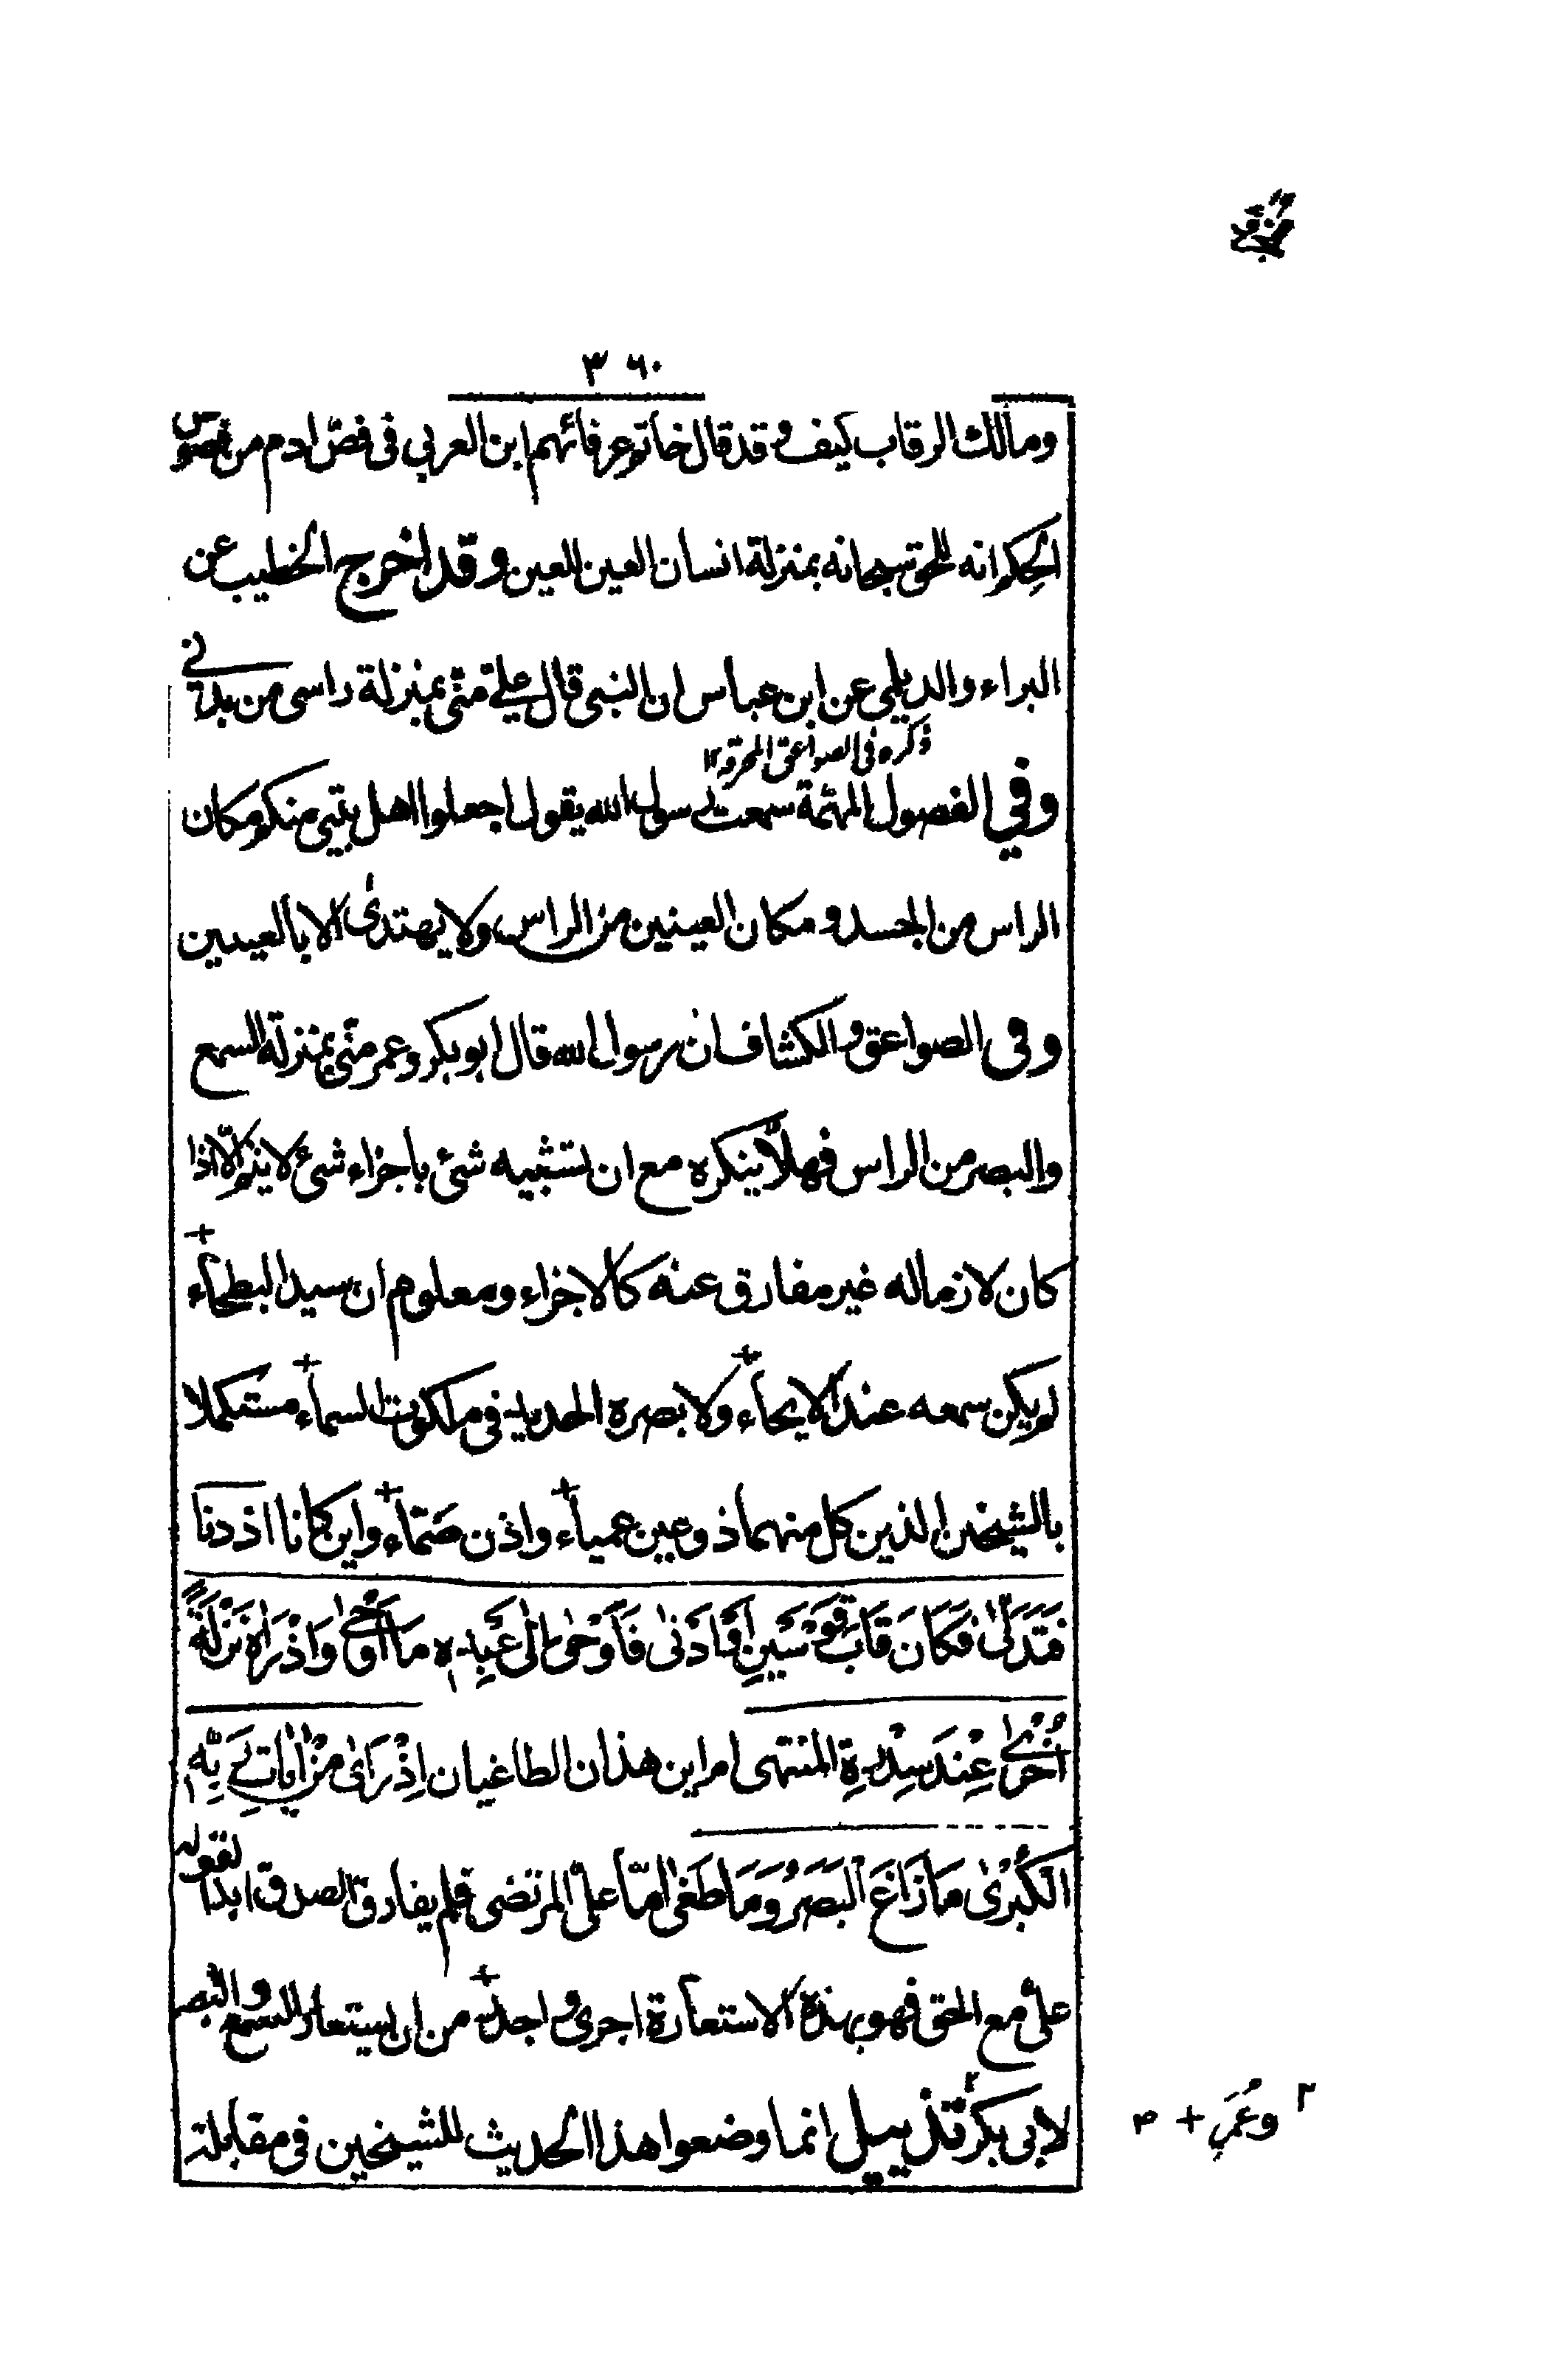 ٣٦٠
ومالك الرقاب كيف وقد قال خاتم عرفائهم ابن العربي فى فصّ ادم من فصوص
الحكم انه للحق سبحانه بمنزلة انسان العين للعين وقد اخرج الخطيب عن
البراء والديلمي عن ابن عباس ان النبى قال علىّ منّى بمنزلة راسى من بدنى
ذكره فى الصواعق المحرقه ١٢
وفي الفصول المهمّة سمعت رسول الله يقول اجعلوا اهل بيتى منكم مكان
الراس من الجسد و مكان العينين من الراس ولا يهتدى الا بالعينين
وفى الصواعق والكشاف ان رسول الله قال ابو بكر وعمر منّى بمنزلة السمع
والبصر من الراس فهلّا ينكره مع ان تشبيه شئ باجزاء شئ لا يتم الّا اذا
كان لازماله غير مفارق عنه كالاجزاء ومعلوم ان سيد البطحآء
لم يكن سمعه عند الايحآء ولا بصره الحديد فى ملكوت السمآء مستكملا
بالشيخين الذين كل منهما ذو عين عميآء واذن صمّآء واين كانا اذ دنا
فَتَدَلّىٰ فَكَانَ قَابَ قَوْسَيْنِ اَوْ اَدْنىٰ فَاَوْحىٰ اِلىٰ عَبْدِهٖ مَا اَوْحىٰ وَاذْ رَاهُ نَزْلَةً
اُخْرىٰ عِنْدَ سِدْرَةِ المنتهى ام اين هذان الطاغيان اِذْ رَاىٰ مِنْ اٰيَاتِ رَبِّهِ
الْكُبْرىٰ مَا زَاغَ الْبَصَرُ وَمَا طَغىٰ امّا علىّ المرتضى فلم يفارق الصدق ابدا لقوله
علىّ مع الحق فهو بهذه الاستعارة اجرى واجدر من ان يستعار السمع والبصر
لابى بكر ٢ تذييل انما وضعوا هذا الحديث للشيخين فى مقابلة
٢ وعُمَر +